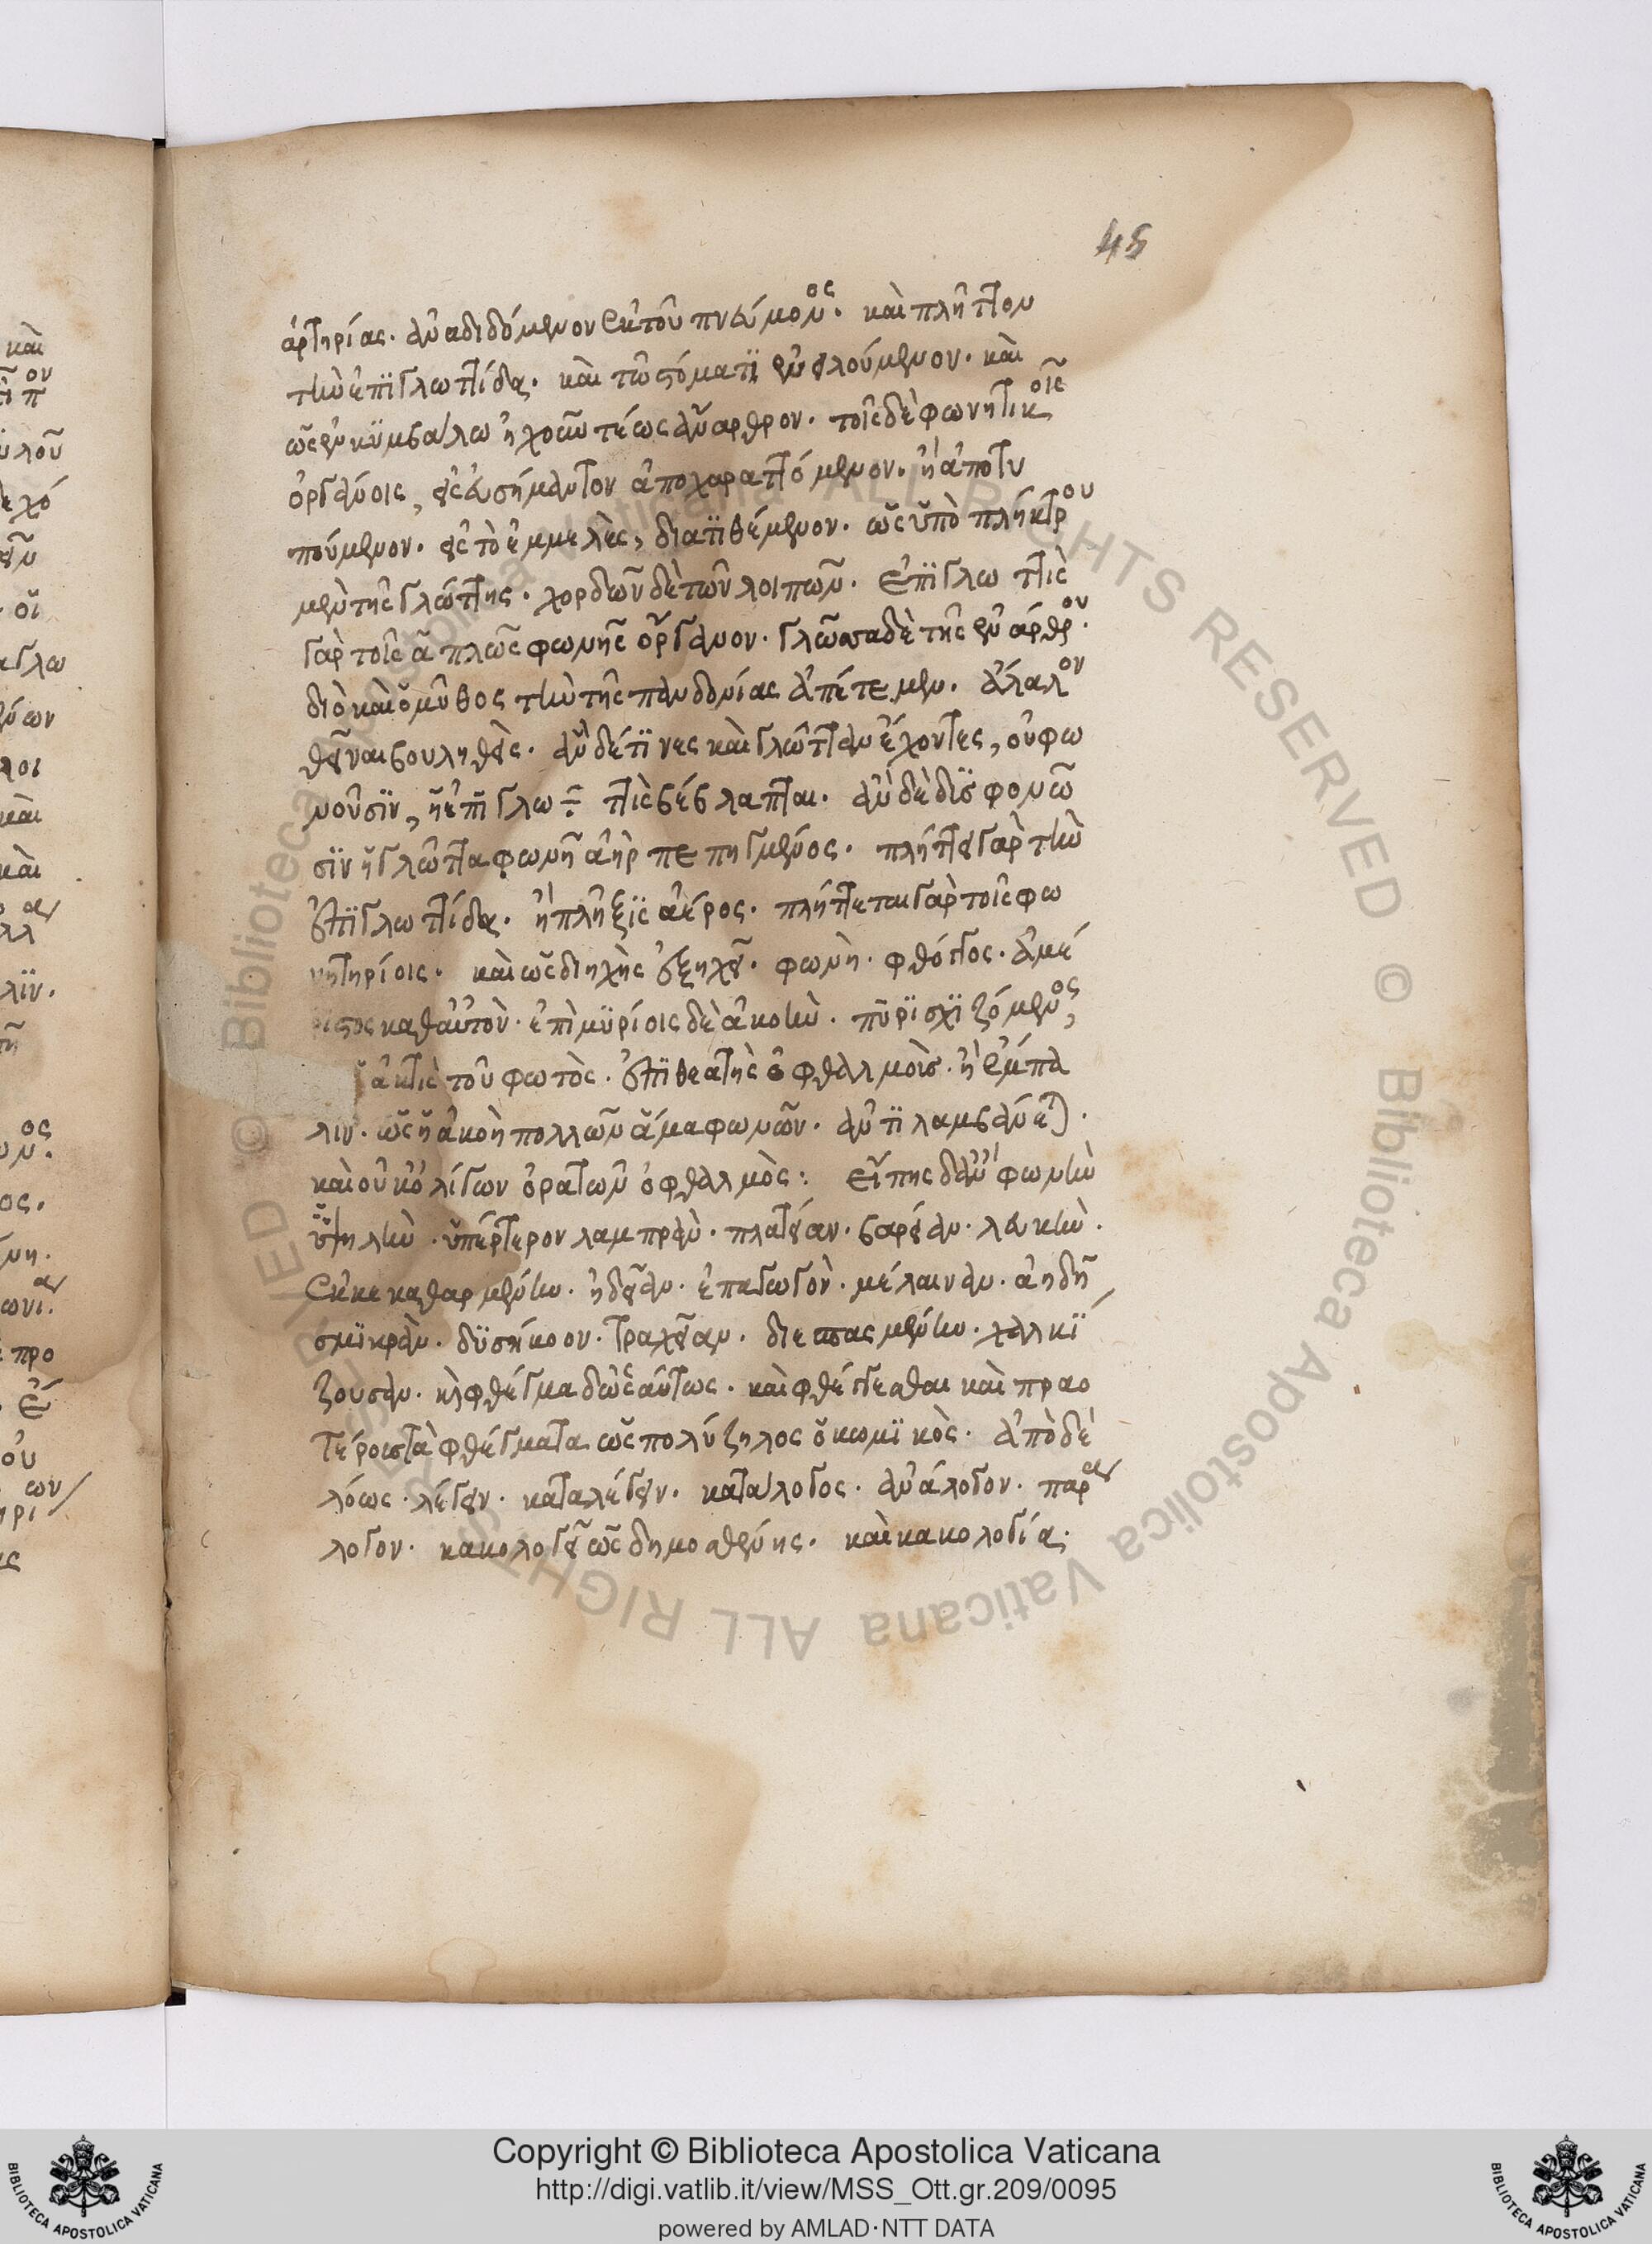 45
ἀρτηρίας. ἀναδιδόμενον ἐκ τοῦ πνεύμονος. καὶ πλῆττον
τὴν ἐπϊγλωττίδα. καὶ τῶ στόματϊ ἐνειλούμενον. καὶ
ὡς ἐν κϋμβάλω ἠχοῦν τέως ἄναρθρον. τοῖς δὲ φωνητικοῖς
ὀργάνοις, εἰς εὐσήμαντον ἀποχαραττόμενον. ἢ ἀποτυ
πούμενον. εἰς τὸ ἐμμελὲς, διατϊθέμενον. ὡς ὑπὸ πλήκτρου
μὲν τῆς γλώττης. χορδῶν δὲ τῶν λοιπῶν. ἐπϊγλωττὶς
γὰρ τοῖς ἁπλῶς φωνῆς ὄργανον. γλῶσσα δὲ τῆς ἐνάρθρου.
διὸ καὶ ὁ μῦθος τὴν τῆς πανδονίας ἀπέτεμεν. ἄλαλον
θεῖναι βουληθεὶς. ἂν δέ τϊνες καὶ γλῶτταν ἔχοντες, οὐ φω
νοῦσϊν, ἡ ἐπϊγλωττὶς βέβλαπται. ἂν δὲ δὶς φωνῶ
σϊν ἡ γλῶττα φωνῆ ἀὴρ πεπηγμένος. πλήττει γὰρ τὴν
ἐπϊγλωττίδα. ἢ πλῆξϊς ἀέρος. πλήττεται γὰρ τοῖς φω
νητηρίοις. καὶ ὡς διηχὴς ἐξηχεῖ. φωνὴ. φθόγγος. ἀμέ
ριστος καθ' αὑτὸν. ἐπὶ μϋρίοις δὲ ἀκοὴν. πῦρϊ σχϊζόμενος,
ἀκτὶς τοῦ φωτὸς. ἐπϊ θεατὴς ὀφθαλμοῖς. ἢ ἔμπα
λιν. ὡς ἡ ἀκοὴ πολλῶν ἅμα φωνῶν. ἀντϊλαμβάνεται.
καὶ οὐκ ὀλίγων ὁρατῶν ὀφθαλμὸς: εἴπης δ' ἂν φωνὴν
ὑψηλὴν. ὑπέρτερον λαμπρὰν. πλατεῖαν. βαρεῖαν. λευκὴν.
ἐκκεκαθαρμένην. ἡδεῖαν. ἐπαγωγὸν. μέλαιναν. ἀηδῆ
σμϊκρὰν. δϋσήκοον. τραχεῖαν. διεσπασμένην. χαλκϊ
ζουσαν. καὶ φθέγμα δ' ὡσαύτως. καὶ φθέγγεσθαι καὶ πραο
τέροις τὰ φθέγματα ὡς πολύζηλος ὁ κωμϊκὸς. ἀπὸ δὲ
λόγος. λέγειν. καταλέγειν. κατάλογος. ἀνάλογον. παρά
λογον. κακολογεῖ ὡς δημοσθένης. καὶ κακολογία.
Copyright © Biblioteca Apostolica Vaticana
http://digi.vatlib.it/view/MSS_Ott.gr.209/0095
powered by AMLAD·NTT DATA
BIBLIOTECA APOSTOLICA VATICANA
BIBLIOTECA APOSTOLICA VATICANA
© Biblioteca Apostolica Vaticana ALL RIGHTS RESERVED © Biblioteca Apostolica Vaticana ALL RIGHTS RESERVED